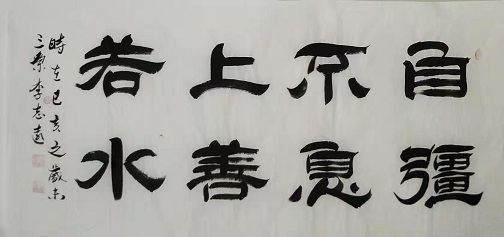 自彊
不息
上善
若水
時在己亥之歲末
三秦李志遠